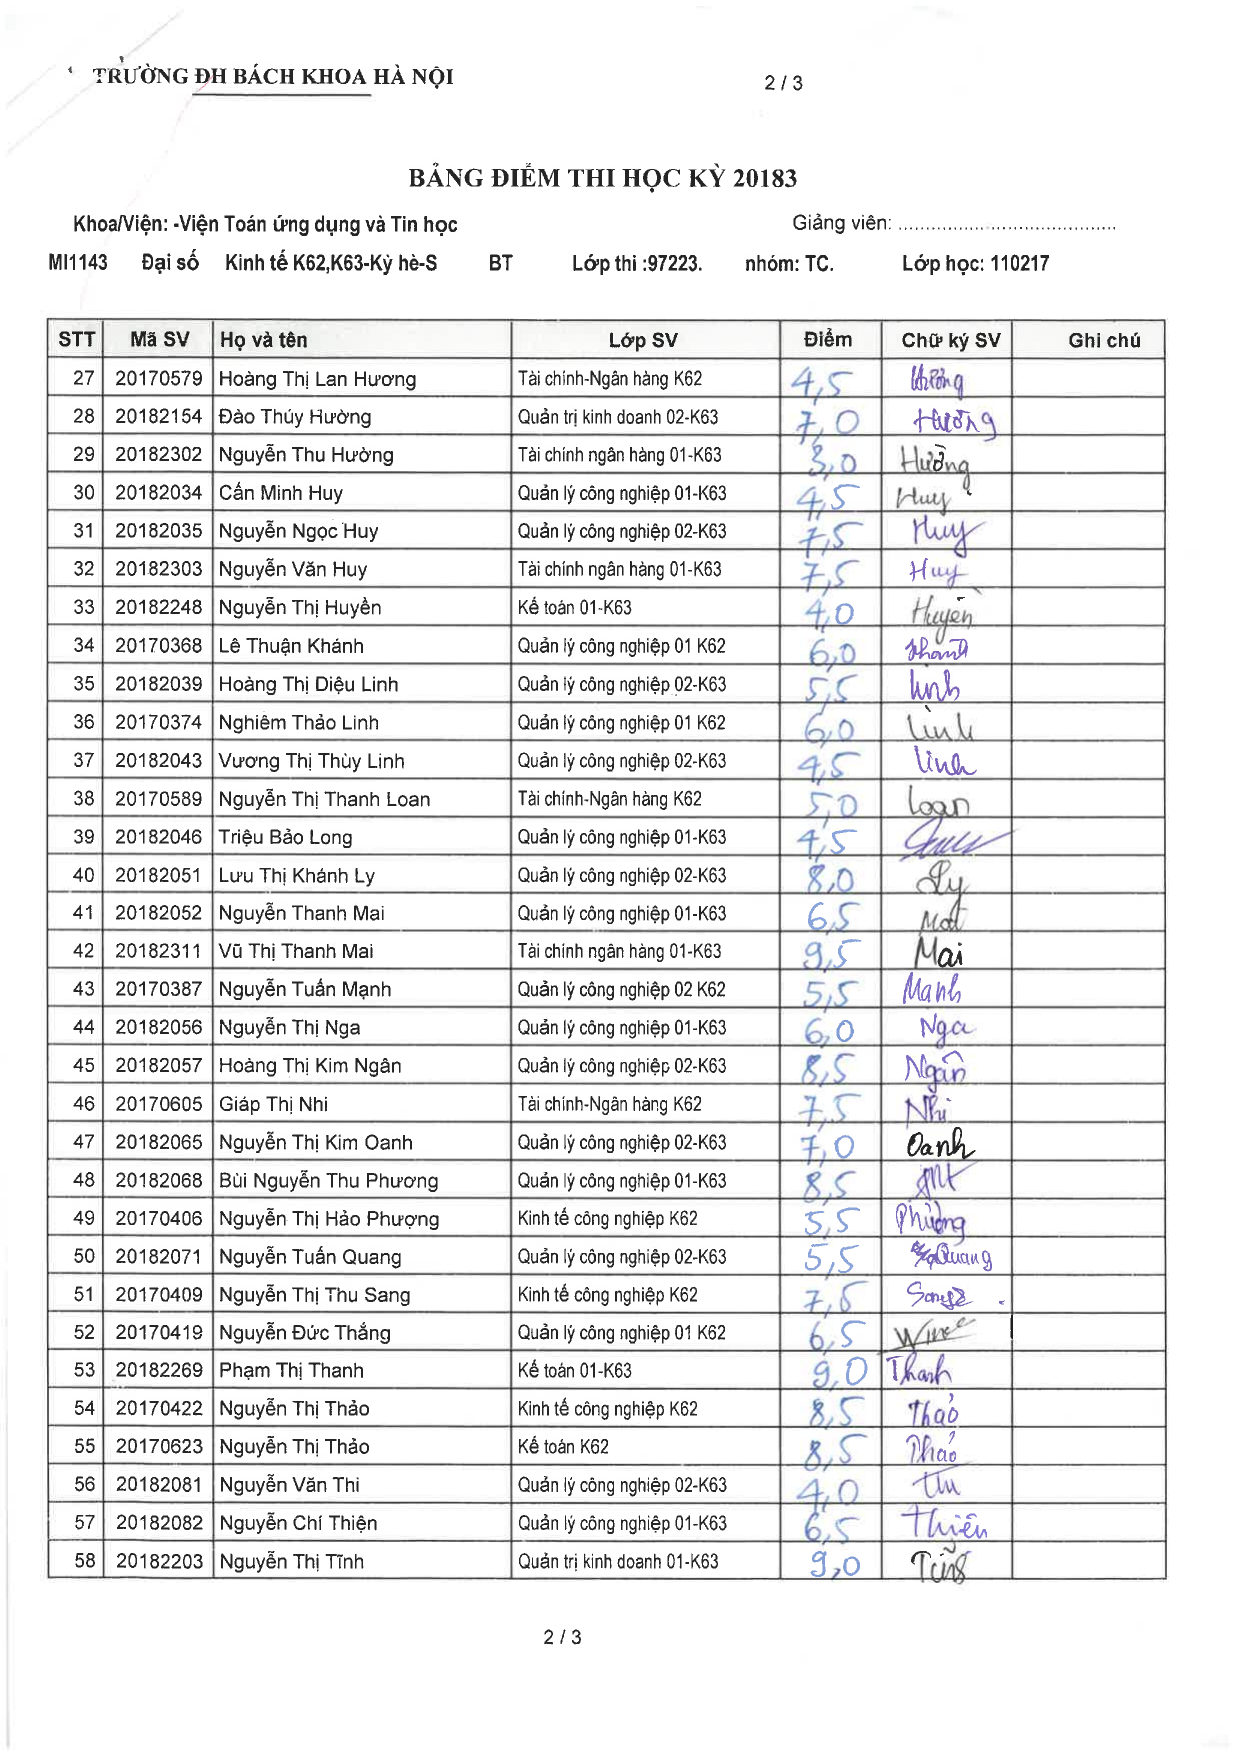 TRƯỜNG ĐH BÁCH KHOA HÀ NỘI 2 / 3
BẢNG ĐIỂM THI HỌC KỲ 20183
Khoa/Viện: -Viện Toán ứng dụng và Tin học Giảng viên: ........................................
MI1143 Đại số Kinh tế K62,K63-Kỳ hè-S BT Lớp thi :97223. nhóm: TC. Lớp học: 110217
STT Mã SV Họ và tên Lớp SV Điểm Chữ ký SV Ghi chú
27 20170579 Hoàng Thị Lan Hương Tài chính-Ngân hàng K62 4,5 Hương
28 20182154 Đào Thúy Hường Quản trị kinh doanh 02-K63 7,0 Hường
29 20182302 Nguyễn Thu Hường Tài chính ngân hàng 01-K63 3,0 Hường
30 20182034 Cấn Minh Huy Quản lý công nghiệp 01-K63 4,5 Huy
31 20182035 Nguyễn Ngọc Huy Quản lý công nghiệp 02-K63 7,5 Huy
32 20182303 Nguyễn Văn Huy Tài chính ngân hàng 01-K63 7,5 Huy
33 20182248 Nguyễn Thị Huyền Kế toán 01-K63 4,0 Huyền
34 20170368 Lê Thuận Khánh Quản lý công nghiệp 01 K62 6,0 Khánh
35 20182039 Hoàng Thị Diệu Linh Quản lý công nghiệp 02-K63 5,5 Linh
36 20170374 Nghiêm Thảo Linh Quản lý công nghiệp 01 K62 6,0 Linh
37 20182043 Vương Thị Thùy Linh Quản lý công nghiệp 02-K63 4,5 Linh
38 20170589 Nguyễn Thị Thanh Loan Tài chính-Ngân hàng K62 5,0 Loan
39 20182046 Triệu Bảo Long Quản lý công nghiệp 01-K63 4,5
40 20182051 Lưu Thị Khánh Ly Quản lý công nghiệp 02-K63 8,0 Ly
41 20182052 Nguyễn Thanh Mai Quản lý công nghiệp 01-K63 6,5 Mai
42 20182311 Vũ Thị Thanh Mai Tài chính ngân hàng 01-K63 9,5 Mai
43 20170387 Nguyễn Tuấn Mạnh Quản lý công nghiệp 02 K62 5,5 Mạnh
44 20182056 Nguyễn Thị Nga Quản lý công nghiệp 01-K63 6,0 Nga
45 20182057 Hoàng Thị Kim Ngân Quản lý công nghiệp 02-K63 8,5 Ngân
46 20170605 Giáp Thị Nhi Tài chính-Ngân hàng K62 7,5 Nhi
47 20182065 Nguyễn Thị Kim Oanh Quản lý công nghiệp 02-K63 7,0 Oanh
48 20182068 Bùi Nguyễn Thu Phương Quản lý công nghiệp 01-K63 8,5
49 20170406 Nguyễn Thị Hảo Phượng Kinh tế công nghiệp K62 5,5 Phượng
50 20182071 Nguyễn Tuấn Quang Quản lý công nghiệp 02-K63 5,5 Quang
51 20170409 Nguyễn Thị Thu Sang Kinh tế công nghiệp K62 7,5 Sang
52 20170419 Nguyễn Đức Thắng Quản lý công nghiệp 01 K62 6,5
53 20182269 Phạm Thị Thanh Kế toán 01-K63 9,0 Thanh
54 20170422 Nguyễn Thị Thảo Kinh tế công nghiệp K62 8,5 Thảo
55 20170623 Nguyễn Thị Thảo Kế toán K62 8,5 Thảo
56 20182081 Nguyễn Văn Thi Quản lý công nghiệp 02-K63 4,0 Thi
57 20182082 Nguyễn Chí Thiện Quản lý công nghiệp 01-K63 6,5 Thiện
58 20182203 Nguyễn Thị Tĩnh Quản trị kinh doanh 01-K63 9,0 Tĩnh
2 / 3